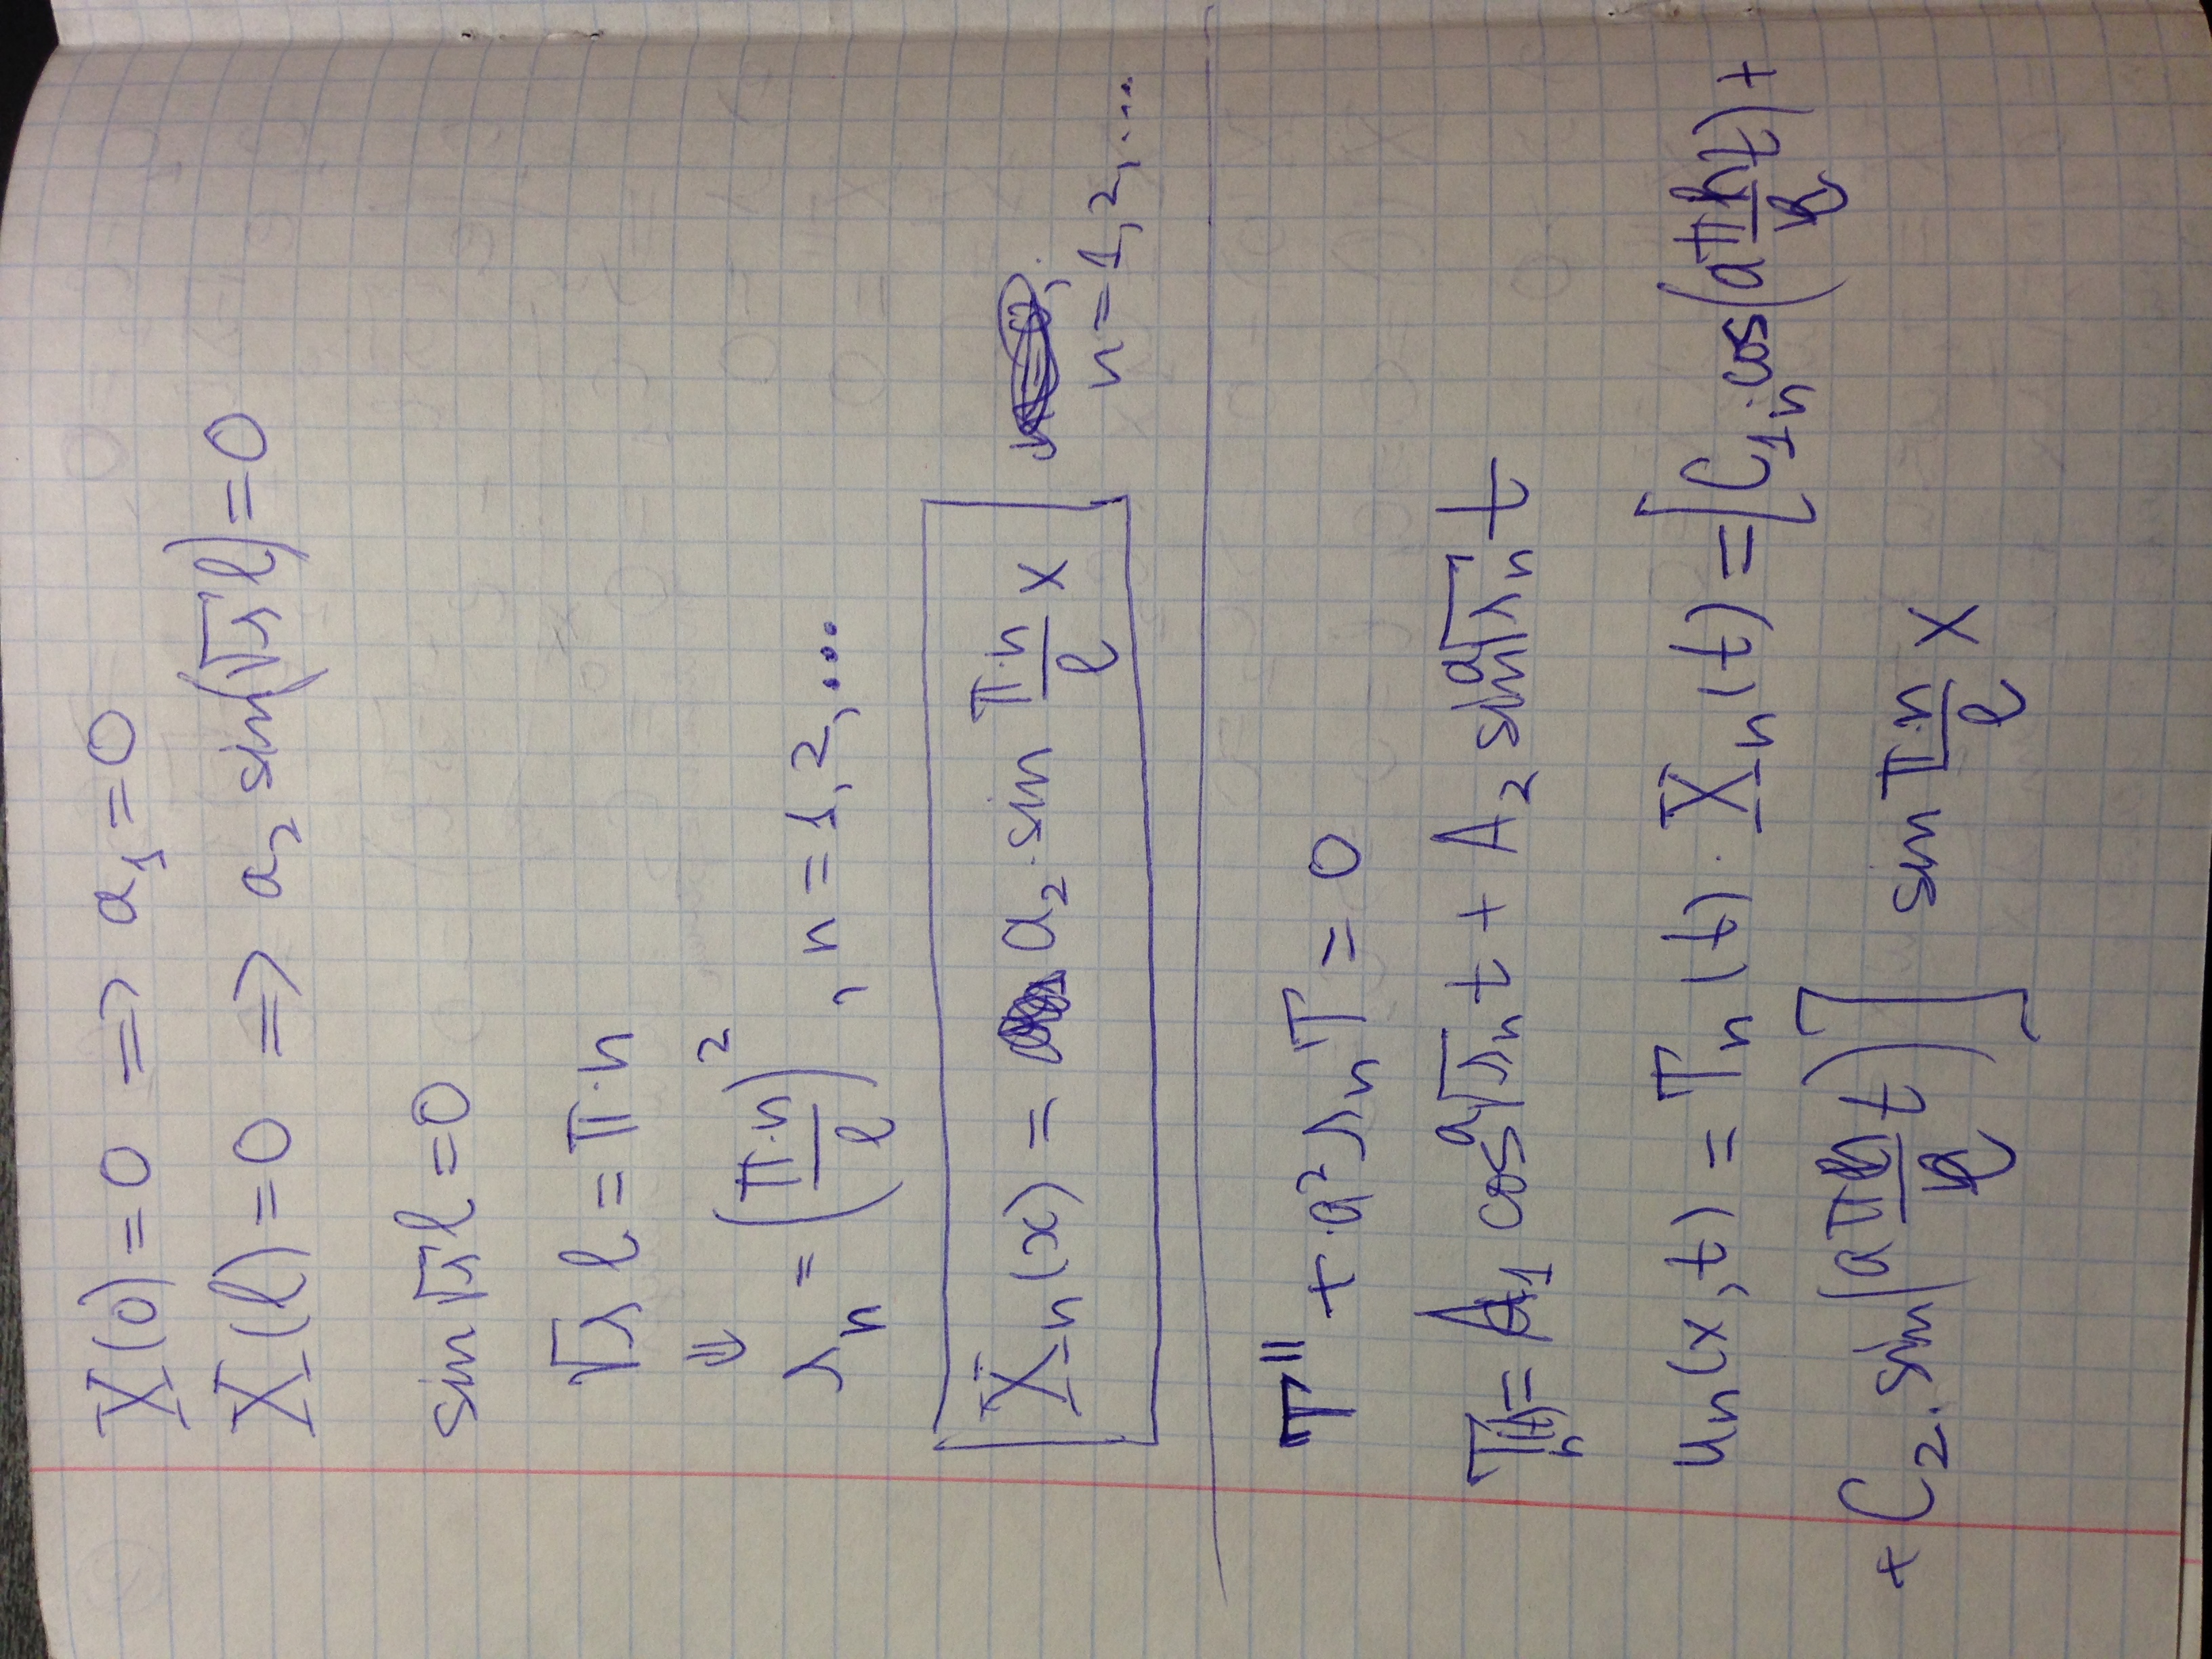 X(0)=0 => a₁=0
X(l)=0 => a₂ sin(√λ l)=0
sin √λ l=0
√λ l=π·n
⇓
λₙ = (π·n/l)², n=1,2,...
Xₙ(x) = a₂·sin π·n/l x
n=1,2,...
T'' + a²λₙT=0
Tₙ(t)= A₁ cos a√λₙ t + A₂ sin a√λₙ t
uₙ(x,t) = Tₙ(t)·Xₙ(t) = [C₁ₙ·cos(aπn/l t)+
+ C₂·sin(aπn/l t)] sin π·n/l x